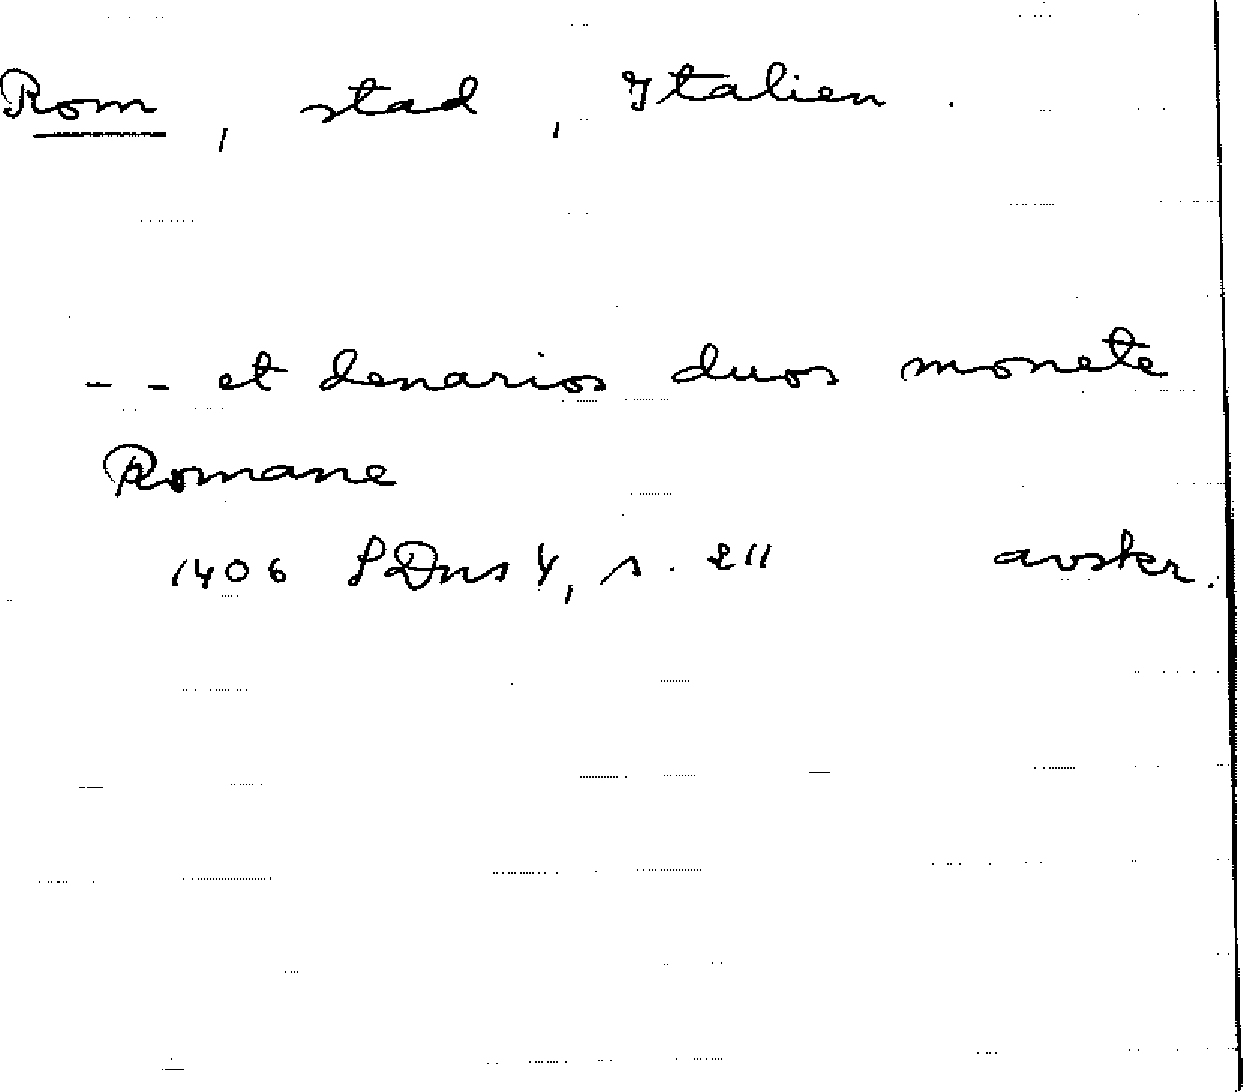 Rom, stad, Italien.
- - et denarios duos monete
Romane
1406 SDns 4, s. 211 avskr.